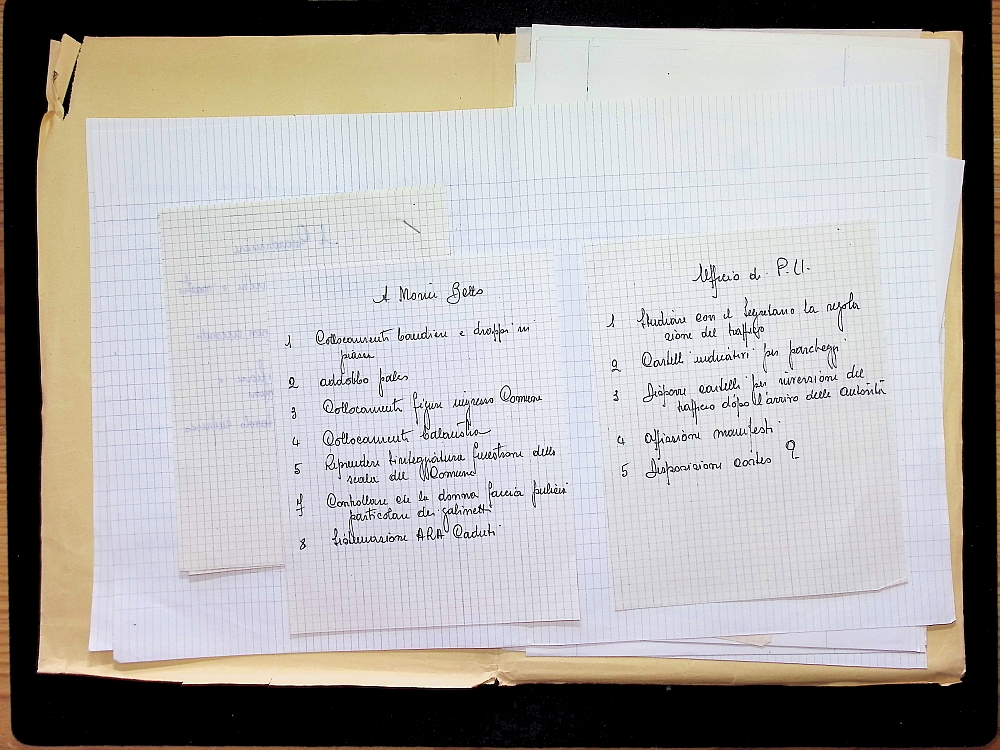 A Monu Betto
1 Collocamenti bandiere e drappi in
piazza
2 addobbo palco
3 Collocamenti figure ingresso Comune
4 Collocamenti balaustra
5 Riprendere tinteggiatura finestrone delle
scale del Comune
7 Controllare che la donna faccia pulizia
particolare dei gabinetti
8 Sistemazione ARA Caduti
Ufficio di P.U.
1 Studiare con il Segretario la regola
zione del traffico
2 Cartelli indicativi per parcheggi
3 Disporre cartelli per inversione del
traffico dopo l'arrivo delle autorità
4 Affissione manifesti
5 Disposizione corteo ?